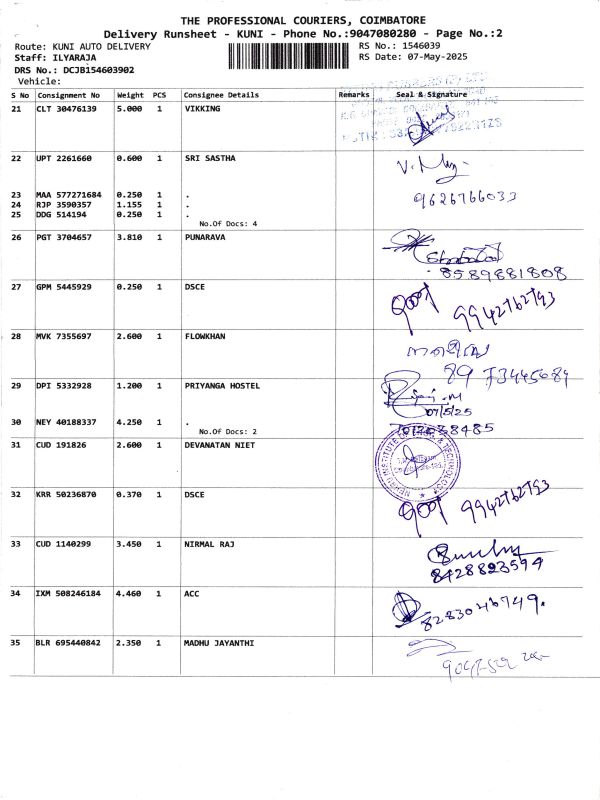 THE PROFESSIONAL COURIERS, COIMBATORE
Delivery Runsheet - KUNI - Phone No.:9047080280 - Page No.:2
Route: KUNI AUTO DELIVERY
Staff: ILYARAJA
DRS No.: DCJB154603902
Vehicle:
RS No.: 1546039
RS Date: 07-May-2025
S No Consignment No Weight PCS Consignee Details Remarks Seal & Signature
21 CLT 30476139 5.000 1 VIKKING
22 UPT 2261660 0.600 1 SRI SASTHA
23 MAA 577271684 0.250 1 .
9626766033
24 RJP 3590357 1.155 1 .
25 DDG 514194 0.250 1 .
No.Of Docs: 4
26 PGT 3704657 3.810 1 PUNARAVA
8589881808
27 GPM 5445929 0.250 1 DSCE
9942762793
28 MVK 7355697 2.600 1 FLOWKHAN
89 73445689
29 DPI 5332928 1.200 1 PRIYANGA HOSTEL
07/5/25
30 NEY 40188337 4.250 1 .
No.Of Docs: 2
31 CUD 191826 2.600 1 DEVANATAN NIET
32 KRR 50236870 0.370 1 DSCE
9942762793
33 CUD 1140299 3.450 1 NIRMAL RAJ
8428823594
34 IXM 508246184 4.460 1 ACC
8283046749.
35 BLR 695440842 2.350 1 MADHU JAYANTHI